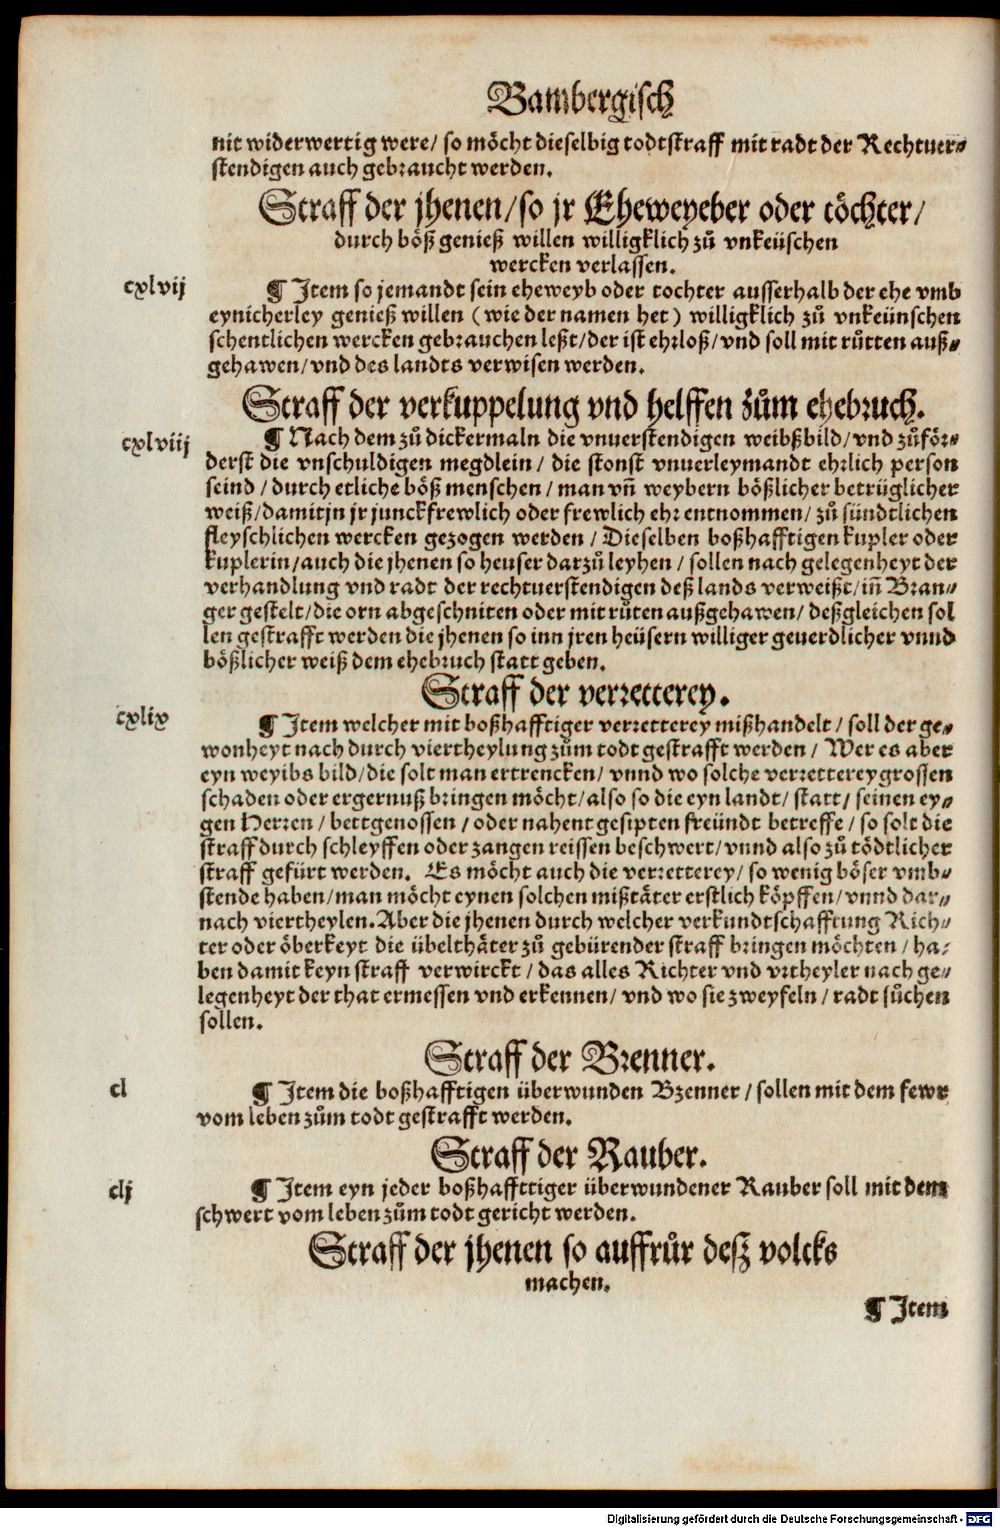 Bambergisch
nit widerwertig were / so möcht dieselbig todtstraff mit radt der Rechtuer⸗
stendigen auch gebraucht werden.
Straff der jhenen / so jr Eheweyeber oder töchter /
durch böß genieß willen willigklich zů vnkeüschen
wercken verlassen.
cxlvij
¶ Item so jemandt sein eheweyb oder tochter ausserhalb der ehe vmb
eynicherley genieß willen (wie der namen het) willigklich zů vnkeünschen
schentlichen wercken gebrauchen leßt / der ist ehrloß / vnd soll mit růtten auß⸗
gehawen / vnd des landts verwisen werden.
Straff der verkuppelung vnd helffen zům ehebruch.
cxlviij
¶ Nach dem zů dickermaln die vnuerstendigen weibßbild / vnd zůför⸗
derst die vnschuldigen megdlein / die stonst vnuerleymandt ehrlich person
seind / durch etliche böß menschen / man vñ weybern bößlicher betrüglicher
weiß / damit jn jr junckfrewlich oder frewlich ehr entnommen / zů sündtlichen
fleyschlichen wercken gezogen werden / Dieselben boßhafftigen kupler oder
kuplerin / auch die jhenen so heuser darzů leyhen / sollen nach gelegenheyt der
verhandlung vnd radt der rechtuerstendigen deß lands verweißt / iñ Bran⸗
ger gestelt / die orn abgeschniten oder mit růten außgehawen / deßgleichen sol
len gestrafft werden die jhenen so inn jren heüsern williger geuerdlicher vnnd
bößlicher weiß dem ehebruch statt geben.
Straff der verretterey.
cxlix
¶ Item welcher mit boßhafftiger verretterey mißhandelt / soll der ge⸗
wonheyt nach durch viertheylung zům todt gestrafft werden / Wer es aber
eyn weyibs bild / die solt man ertrencken / vnnd wo solche verretterey grossen
schaden oder ergernuß bringen möcht / also so die eyn landt / statt / seinen ey⸗
gen Herren / bettgenossen / oder nahent gesipten freündt betreffe / so solt die
straff durch schleyffen oder zangen reissen beschwert / vnnd also zů tödtlicher
straff gefürt werden. Es möcht auch die verretterey / so wenig böser vmb⸗
stende haben / man möcht eynen solchen mißtäter erstlich köpffen / vnnd dar⸗
nach viertheylen. Aber die jhenen durch welcher verkundtschafftung Rich⸗
ter oder öberkeyt die übelthäter zů gebürender straff bringen möchten / ha⸗
ben damit keyn straff verwirckt / das alles Richter vnd vrtheyler nach ge⸗
legenheyt der that ermessen vnd erkennen / vnd wo sie zweyfeln / radt sůchen
sollen.
Straff der Brenner.
cl
¶ Item die boßhafftigen überwunden Bzenner / sollen mit dem fewr
vom leben zům todt gestrafft werden.
Straff der Rauber.
clj
¶ Item eyn jeder boßhaffttiger überwundener Rauber soll mit dem
schwert vom leben zům todt gericht werden.
Straff der jhenen so auffrůr desz volcks
machen.
¶ Item
Digitalisierung gefördert durch die Deutsche Forschungsgemeinschaft - DFG